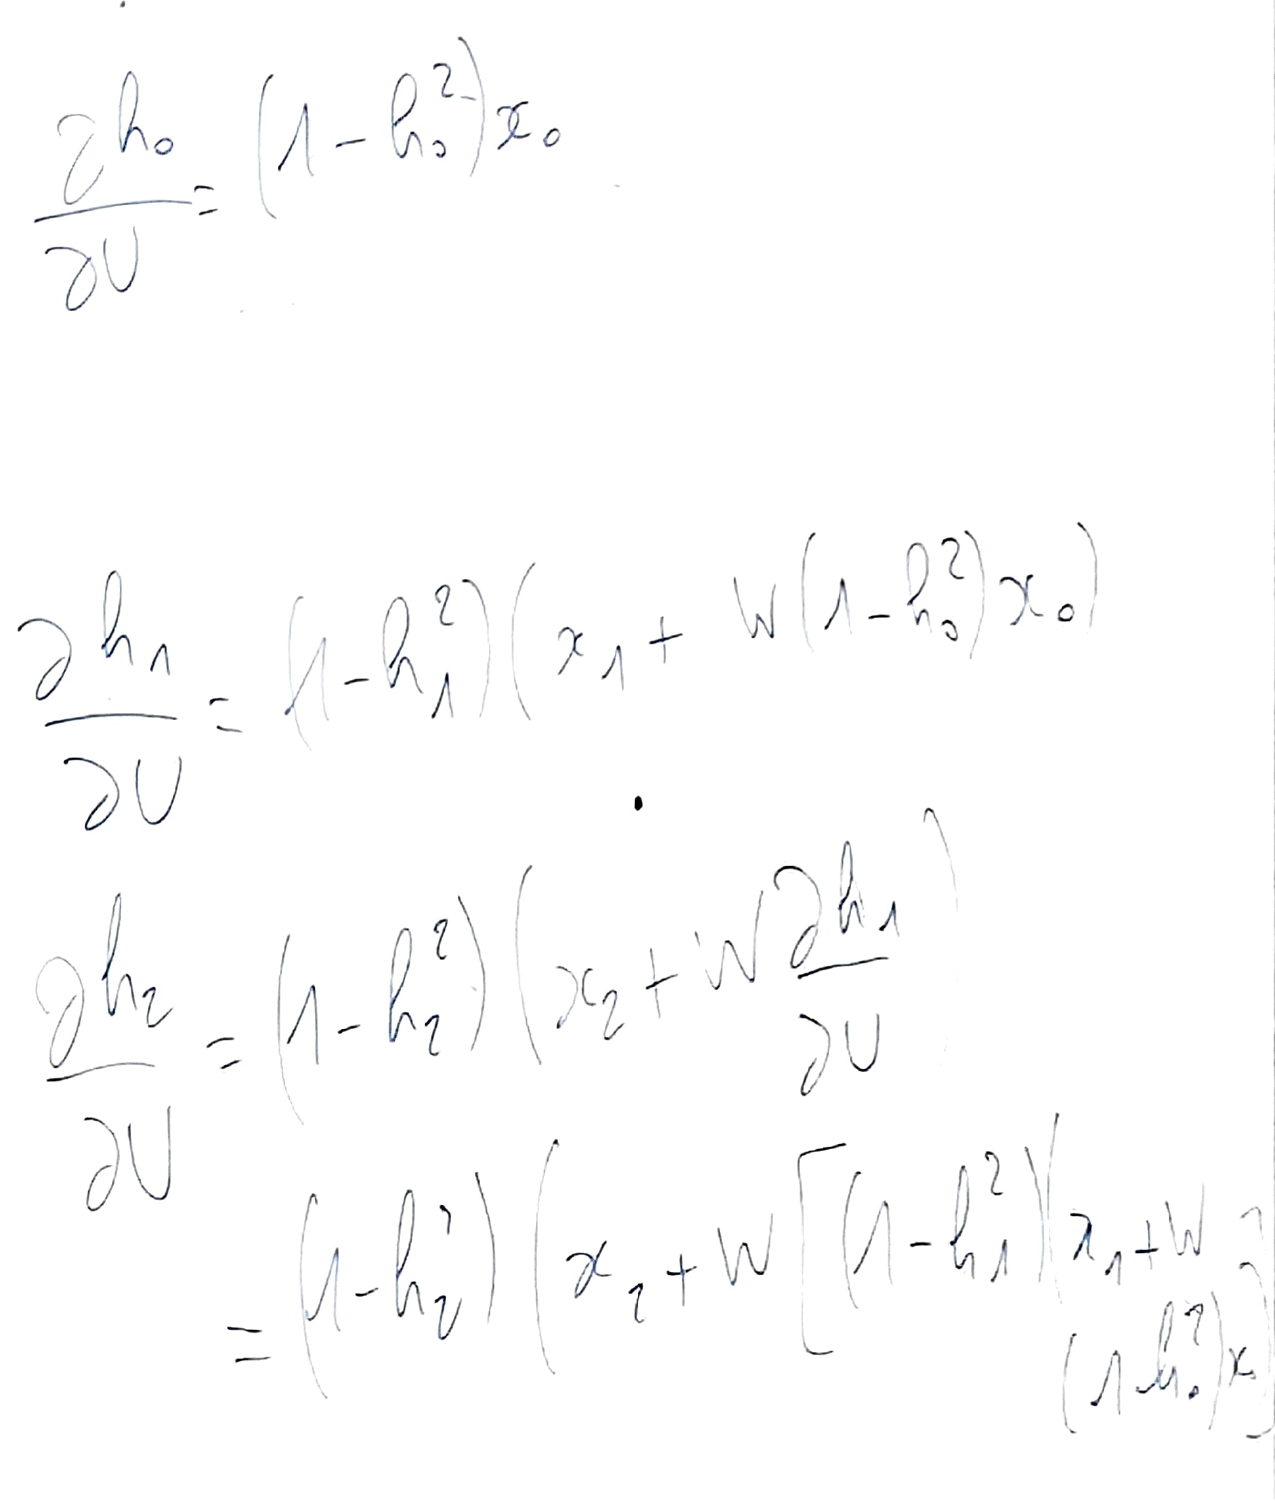 ∂h₀/∂U = (1 - h₀²)x₀
∂h₁/∂U = (1 - h₁²)(x₁ + W(1 - h₀²)x₀)
∂h₂/∂U = (1 - h₂²)(x₂ + W ∂h₁/∂U)
= (1 - h₂²)(x₂ + W[(1 - h₁²)(x₁ + W
(1 - h₀²)x₀]